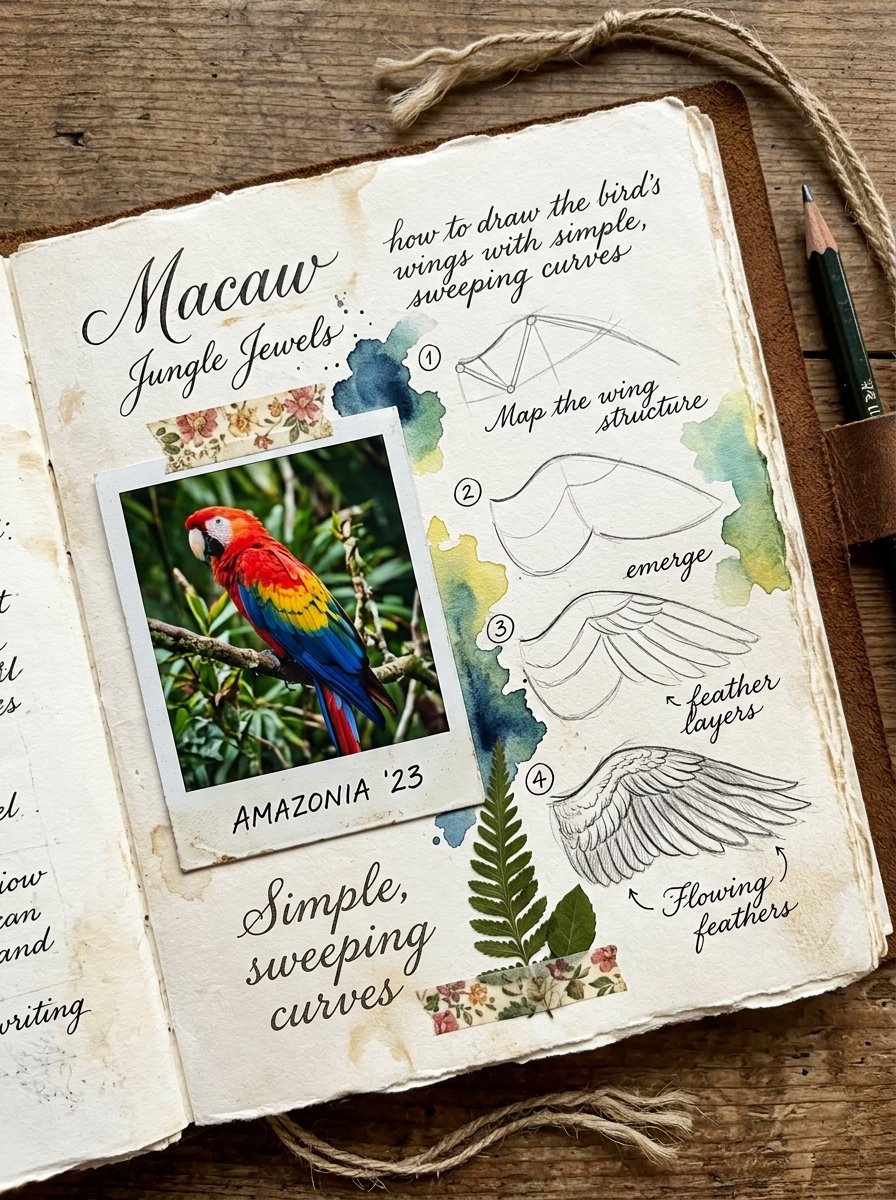 Macaw
Jungle Jewels
how to draw the bird's
wings with simple,
sweeping curves
1
Map the wing
structure
2
emerge
3
feather
layers
4
Flowing
feathers
AMAZONIA '23
Simple,
sweeping
curves
can
and
writing